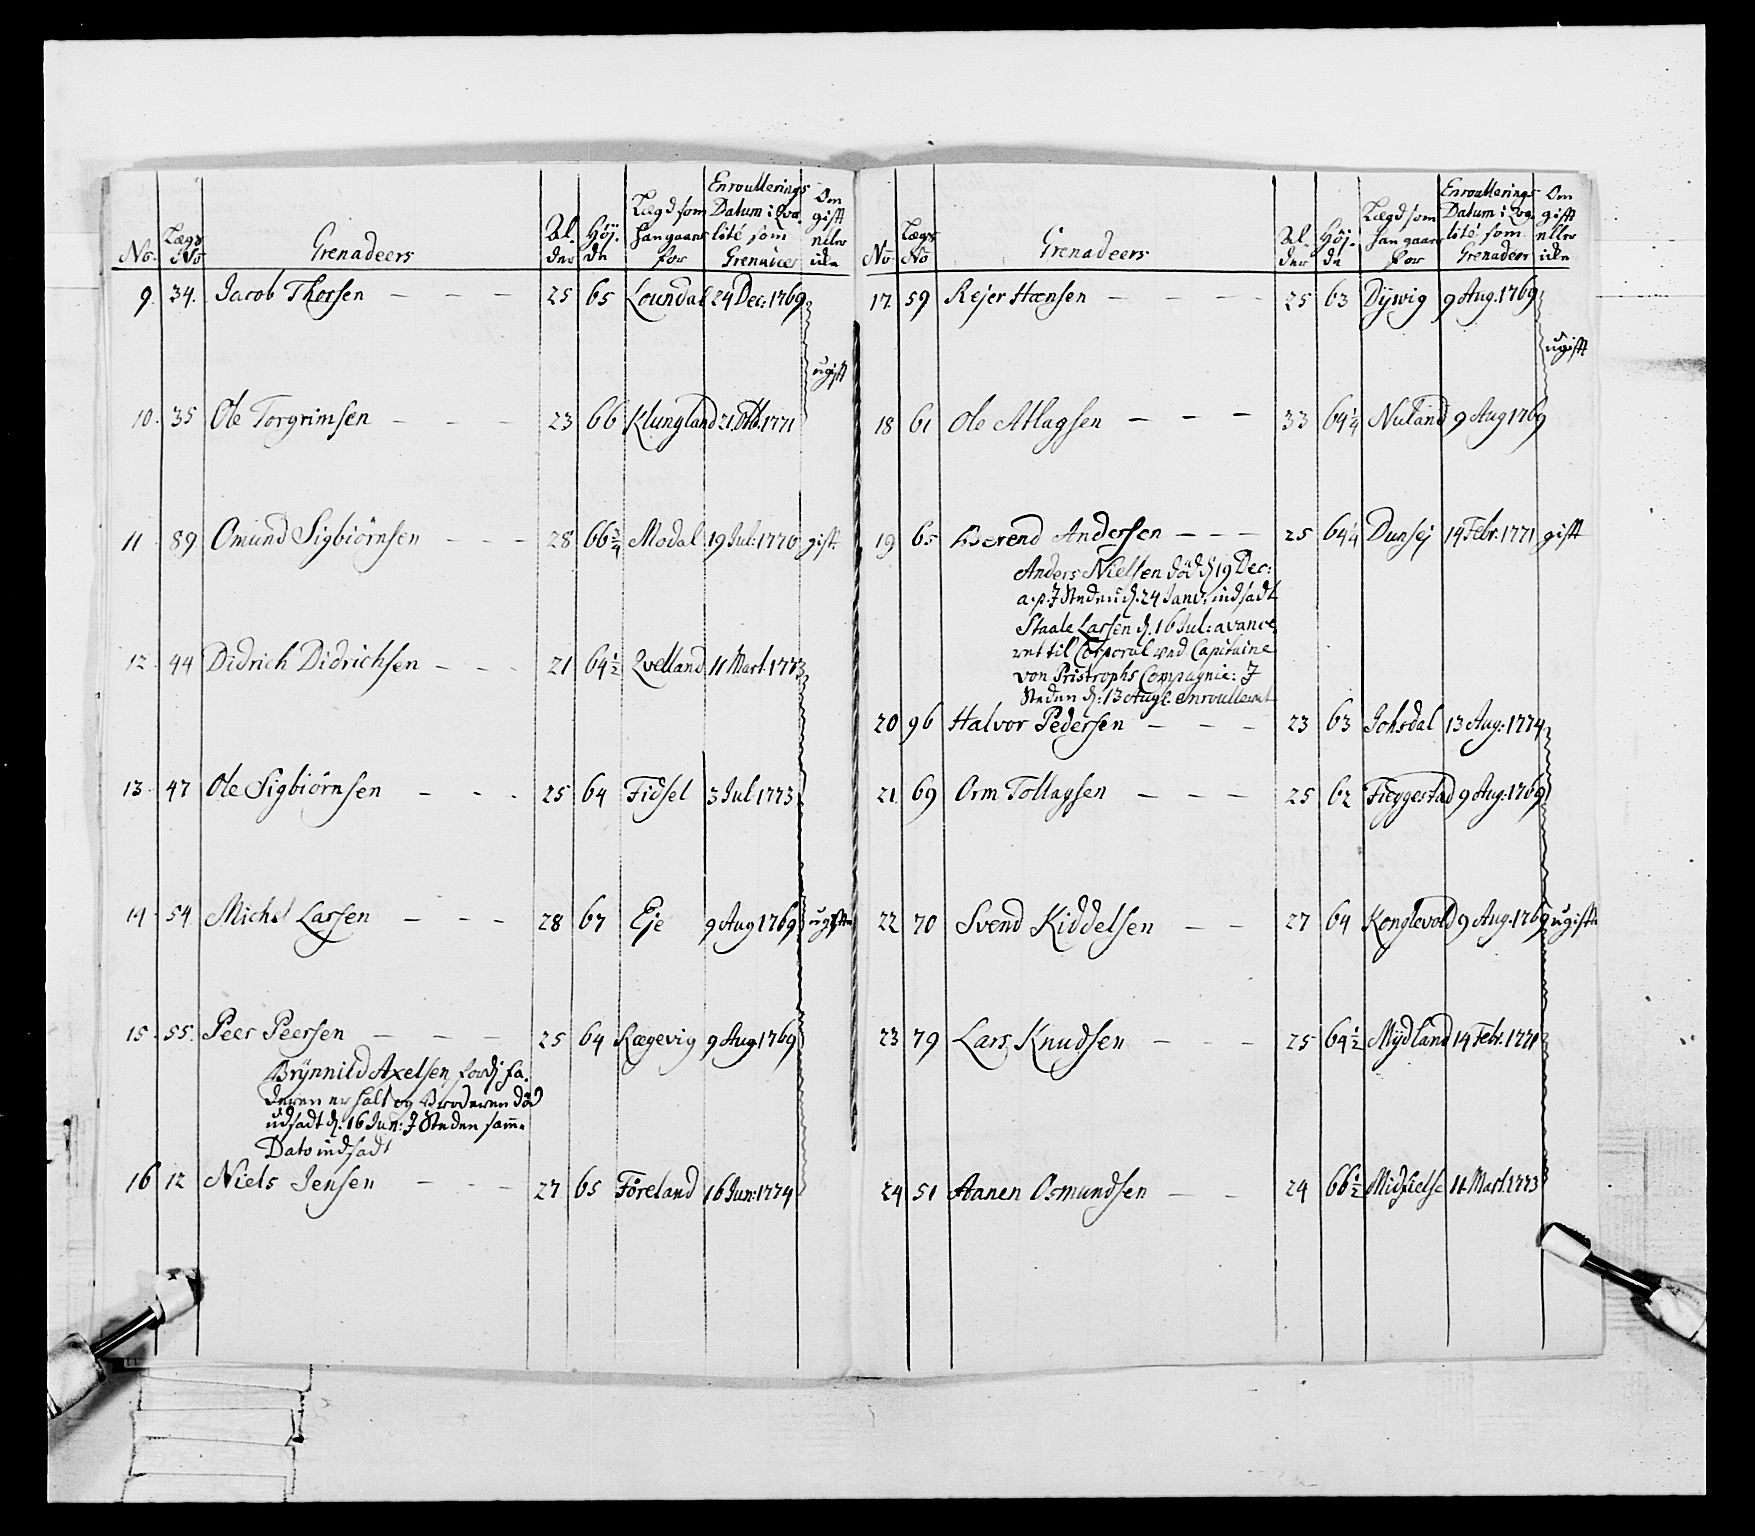 No. Lægs No Grenadeers Al- der Høj- de Lægd som han gaaer for Enroullerings Datum i Qva- lité som Grenadeer Om gift eller ikke
9. 34. Jacob Thorsen — — — 25 65 Loundal 24 Dec: 1769
ugift
10. 35 Ole Torgrimsen — — — 23 66 Klungland 21 Octb. 1771
11 89 Omund Sigbiörnsen — — — 28 66 3/4 Modal 19 Jul: 1770 gift
12. 44 Didrich Didrichsen — — — 21 64 1/2 Qvelland 11 Mart. 1773
13. 47 Ole Sigbiörnsen — — — 25 64 Fidsel 3 Jul 1773
14. 54 Michel Larsen — — — 28 67 Eje 9 Aug 1769 ugifte
15. 55. Peer Peersen — — — 25 64 Rægevig 9 Aug. 1769
Brÿnnild Axelsen, fordj fa-
deren er halt og Broderen död
udsadt d. 16 Jun: J Steden samme
Dato indsadt
16 12 Niels Jensen — — — 27 65 Föreland 16 Jun: 1774
No Lægs No Grenadeers Al- der Høj- de Lægd som han gaaer for Enroullerings Datum i Qva- lité som Grenadeer Om gift eller ikke
17. 59 Rejer Hansen — — — — 25 63 Dÿvig 9 Aug. 1769
ugift
18 61 Ole Atlagsen — — — 33 64 1/4 Nuland 9 Aug 1769
19 65 Berend Andersen — — — 25 64 1/4 Dunsej 14 Febr: 1771 gift
Anders Nielsen död d. 19 Dec:
a. p. J Steden d. 24 Janv: indsadt
Staale Larsen d. 16 Jul: avance
ret til Corporal ved Capitaine
von Pristrophs Compagnie: J
Steden d: 13 Aug: enroulleret
20 96 Halvor Pedersen — — — 23 63 Johsdal 13 Aug: 1774
21 69 Orm Tollagsen — — — 25 62 Fieggestad 9 Aug. 1769
22 70 Svend Kiddelsen — — 27 64 Konglevold 9 Aug. 1769 ugifte
23 79 Lars Knudsen — — — 25 64 1/2 Mÿdland 14 Febr. 1771
24 51 Aanen Osmundsen — — 24 66 1/2 Midfielse 11 Mart. 1773